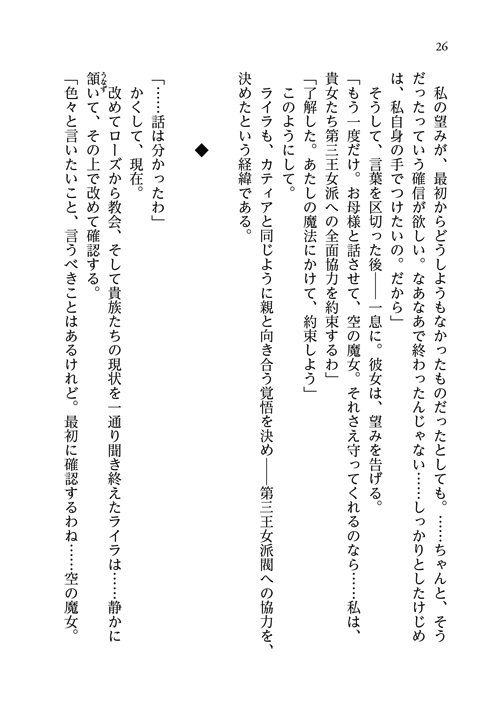 26
私の望みが、最初からどうしようもなかったものだったとしても。……ちゃんと、そう
だったっていう確信が欲しい。なあなあで終わったんじゃない……しっかりとしたけじめ
は、私自身の手でつけたいの。だから」
そうして、言葉を区切った後――一息に。彼女は、望みを告げる。
「もう一度だけ。お母様と話させて、空の魔女。それさえ守ってくれるのなら……私は、
貴女たち第三王女派への全面協力を約束するわ」
「了解した。あたしの魔法にかけて、約束しよう」
このようにして。
ライラも、カティアと同じように親と向き合う覚悟を決め――第三王女派閥への協力を、
決めたという経緯である。
◆
「……話は分かったわ」
かくして、現在。
改めてローズから教会、そして貴族たちの現状を一通り聞き終えたライラは……静かに
頷いて、その上で改めて確認する。
うなず
「色々と言いたいこと、言うべきことはあるけれど。最初に確認するわね……空の魔女。